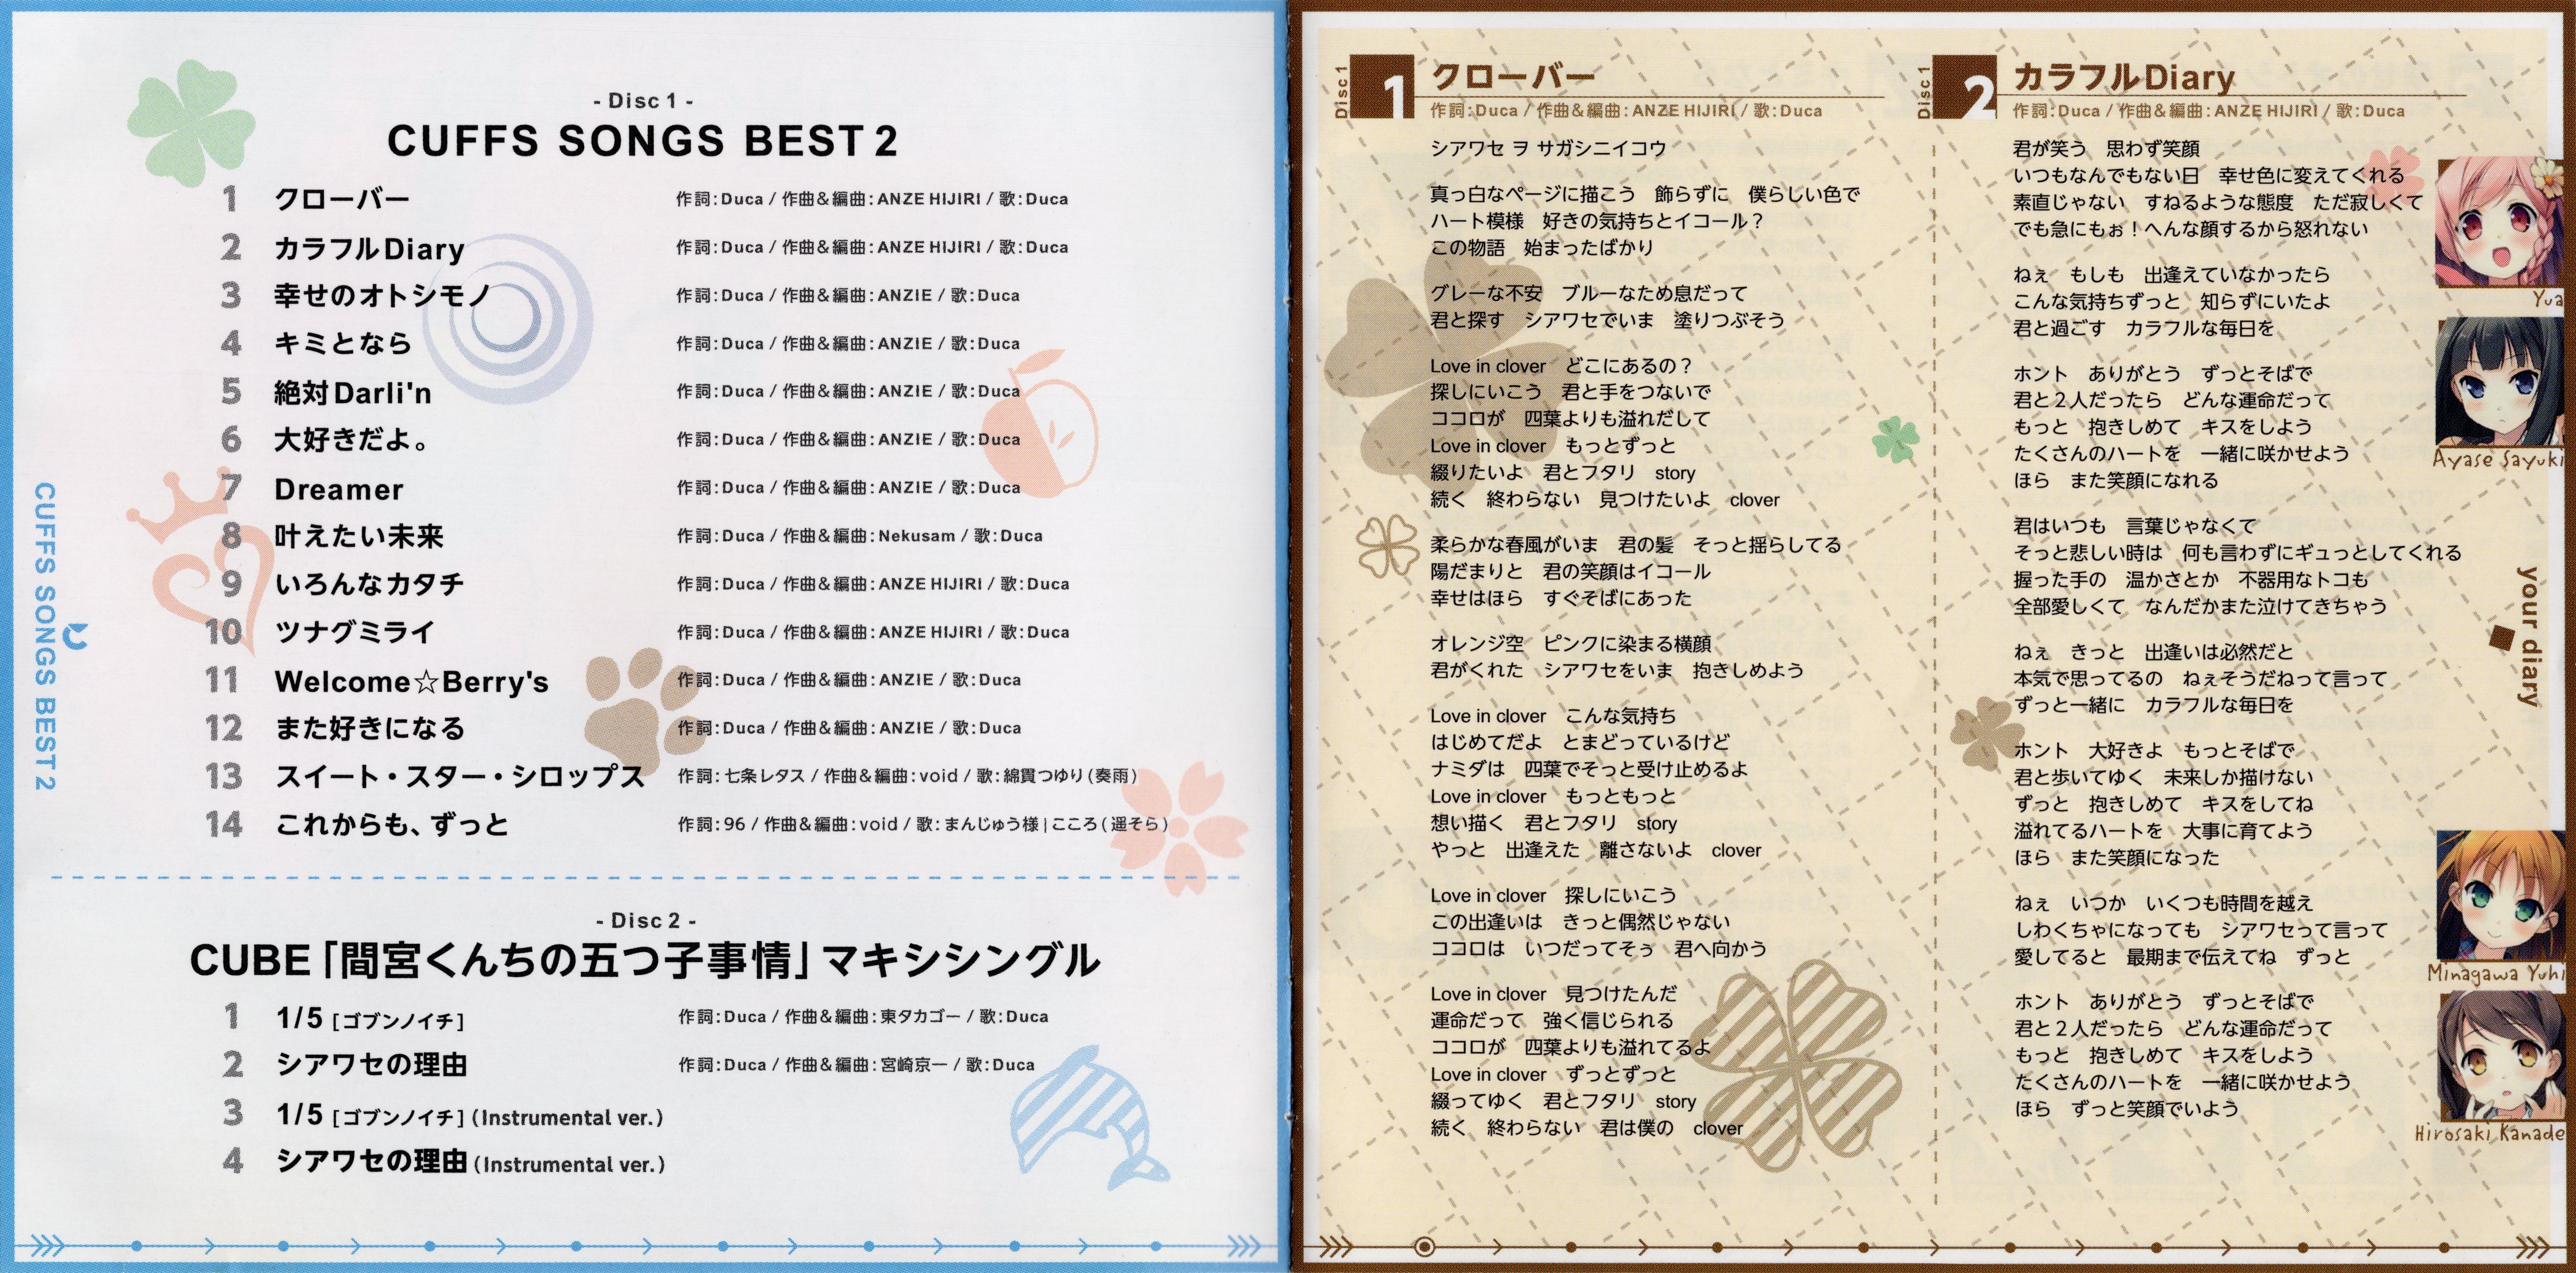 - Disc 1 -
CUFFS SONGS BEST 2
1 クローバー 作詞:Duca / 作曲&編曲:ANZE HIJIRI / 歌:Duca
2 カラフルDiary 作詞:Duca / 作曲&編曲:ANZE HIJIRI / 歌:Duca
3 幸せのオトシモノ 作詞:Duca / 作曲&編曲:ANZIE / 歌:Duca
4 キミとなら 作詞:Duca / 作曲&編曲:ANZIE / 歌:Duca
5 絶対Darli'n 作詞:Duca / 作曲&編曲:ANZIE / 歌:Duca
6 大好きだよ。 作詞:Duca / 作曲&編曲:ANZIE / 歌:Duca
7 Dreamer 作詞:Duca / 作曲&編曲:ANZIE / 歌:Duca
8 叶えたい未来 作詞:Duca / 作曲&編曲:Nekusam / 歌:Duca
9 いろんなカタチ 作詞:Duca / 作曲&編曲:ANZE HIJIRI / 歌:Duca
10 ツナグミライ 作詞:Duca / 作曲&編曲:ANZE HIJIRI / 歌:Duca
11 Welcome☆Berry's 作詞:Duca / 作曲&編曲:ANZIE / 歌:Duca
12 また好きになる 作詞:Duca / 作曲&編曲:ANZIE / 歌:Duca
13 スイート・スター・シロップス 作詞:七条レタス / 作曲&編曲:void / 歌:綿貫つゆり(奏雨)
14 これからも、ずっと 作詞:96 / 作曲&編曲:void / 歌:まんじゅう様|こころ(遥そら)
CUFFS SONGS BEST 2
- Disc 2 -
CUBE「間宮くんちの五つ子事情」マキシシングル
1 1/5 [ゴブンノイチ] 作詞:Duca / 作曲&編曲:東タカゴー / 歌:Duca
2 シアワセの理由 作詞:Duca / 作曲&編曲:宮崎京一 / 歌:Duca
3 1/5 [ゴブンノイチ] (Instrumental ver.)
4 シアワセの理由 (Instrumental ver.)
Disc 1
1 クローバー
作詞:Duca / 作曲&編曲:ANZE HIJIRI / 歌:Duca
シアワセ ヲ サガシニイコウ
真っ白なページに描こう　飾らずに　僕らしい色で
ハート模様　好きの気持ちとイコール？
この物語　始まったばかり
グレーな不安　ブルーなため息だって
君と探す　シアワセでいま　塗りつぶそう
Love in clover　どこにあるの？
探しにいこう　君と手をつないで
ココロが　四葉よりも溢れだして
Love in clover　もっとずっと
綴りたいよ　君とフタリ　story
続く　終わらない　見つけたいよ　clover
柔らかな春風がいま　君の髪　そっと揺らしてる
陽だまりと　君の笑顔はイコール
幸せはほら　すぐそばにあった
オレンジ空　ピンクに染まる横顔
君がくれた　シアワセをいま　抱きしめよう
Love in clover　こんな気持ち
はじめてだよ　とまどっているけど
ナミダは　四葉でそっと受け止めるよ
Love in clover　もっともっと
想い描く　君とフタリ　story
やっと　出逢えた　離さないよ　clover
Love in clover　探しにいこう
この出逢いは　きっと偶然じゃない
ココロは　いつだってそぅ　君へ向かう
Love in clover　見つけたんだ
運命だって　強く信じられる
ココロが　四葉よりも溢れてるよ
Love in clover　ずっとずっと
綴ってゆく　君とフタリ　story
続く　終わらない　君は僕の　clover
Disc 1
2 カラフルDiary
作詞:Duca / 作曲&編曲:ANZE HIJIRI / 歌:Duca
君が笑う　思わず笑顔
いつもなんでもない日　幸せ色に変えてくれる
素直じゃない　すねるような態度　ただ寂しくて
でも急にもぉ！へんな顔するから怒れない
ねぇ　もしも　出逢えていなかったら
こんな気持ちずっと　知らずにいたよ
君と過ごす　カラフルな毎日を
ホント　ありがとう　ずっとそばで
君と２人だったら　どんな運命だって
もっと　抱きしめて　キスをしよう
たくさんのハートを　一緒に咲かせよう
ほら　また笑顔になれる
君はいつも　言葉じゃなくて
そっと悲しい時は　何も言わずにギュっとしてくれる
握った手の　温かさとか　不器用なトコも
全部愛しくて　なんだかまた泣けてきちゃう
ねぇ　きっと　出逢いは必然だと
本気で思ってるの　ねぇそうだねって言って
ずっと一緒に　カラフルな毎日を
ホント　大好きよ　もっとそばで
君と歩いてゆく　未来しか描けない
ずっと　抱きしめて　キスをしてね
溢れてるハートを　大事に育てよう
ほら　また笑顔になった
ねぇ　いつか　いくつも時間を越え
しわくちゃになっても　シアワセって言って
愛してると　最期まで伝えてね　ずっと
ホント　ありがとう　ずっとそばで
君と２人だったら　どんな運命だって
もっと　抱きしめて　キスをしよう
たくさんのハートを　一緒に咲かせよう
ほら　ずっと笑顔でいよう
Yua
Ayase Sayuki
your diary
Minagawa Yuhi
Hirosaki Kanade